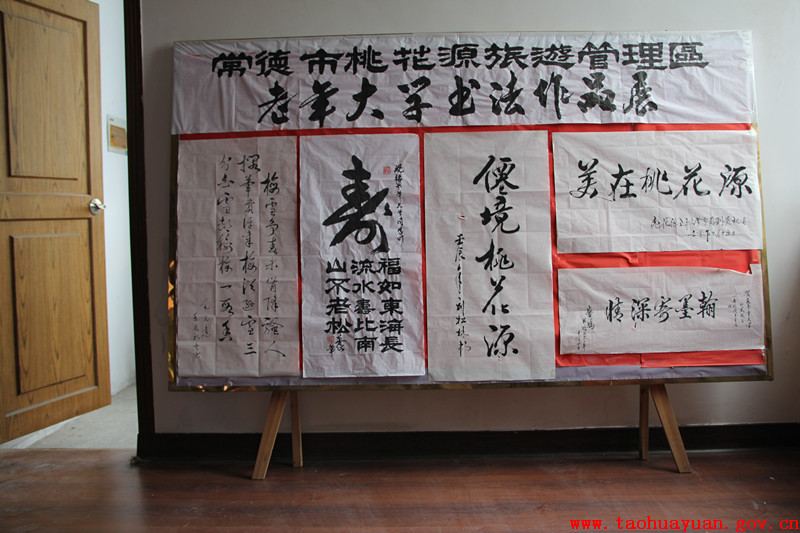 常德市桃花源旅遊管理區
老年大学书法作品展
梅雪争春未肯降骚人
搁筆费评章梅须逊雪三
分白雪却输梅一段香
壽
福如東海長
流水壽比南
山不老松
僊境桃花源
壬辰年
美在桃花源
翰墨寄深情
www.taohuayuan.gov.cn